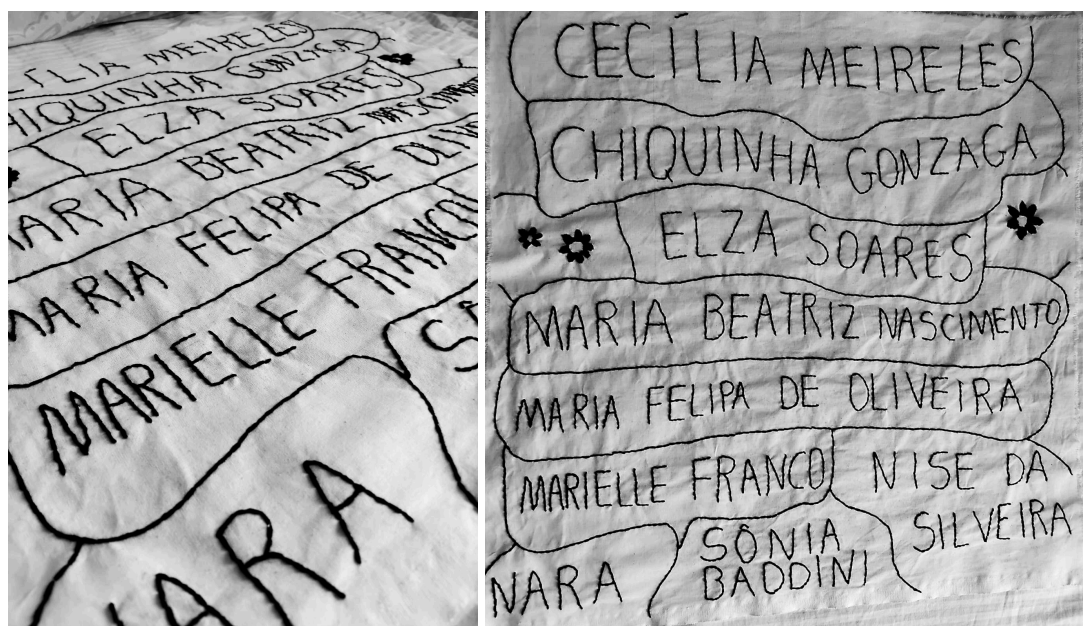 CECÍLIA MEIRELES
CHIQUINHA GONZAGA
ELZA SOARES
MARIA BEATRIZ NASCIMENTO
MARIA FELIPA DE OLIV
MARIELLE FRANCO
NARA
CECÍLIA MEIRELES
CHIQUINHA GONZAGA
ELZA SOARES
MARIA BEATRIZ NASCIMENTO
MARIA FELIPA DE OLIVEIRA
MARIELLE FRANCO
NISE DA
SILVEIRA
NARA
SÔNIA
BADDINI